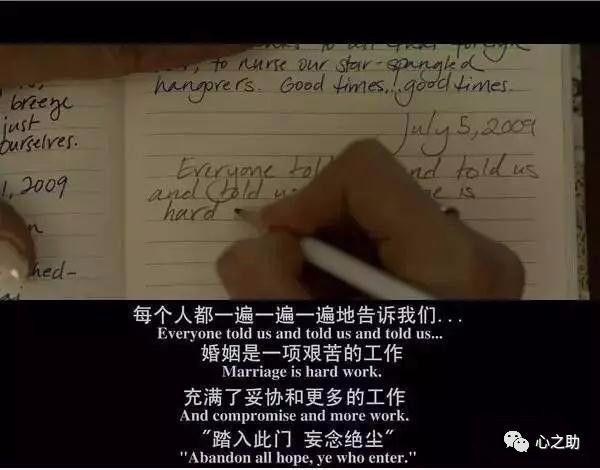 breeze
just
ourselves.
2009
hed-
to all that foreign
to nurse our star-spangled
hangovers. Good times...good times.
July 5, 2009
Everyone told and told us
and told us is
hard
每个人都一遍一遍一遍地告诉我们...
Everyone told us and told us and told us...
婚姻是一项艰苦的工作
Marriage is hard work.
充满了妥协和更多的工作
And compromise and more work.
"踏入此门 妄念绝尘"
"Abandon all hope, ye who enter."
心之助